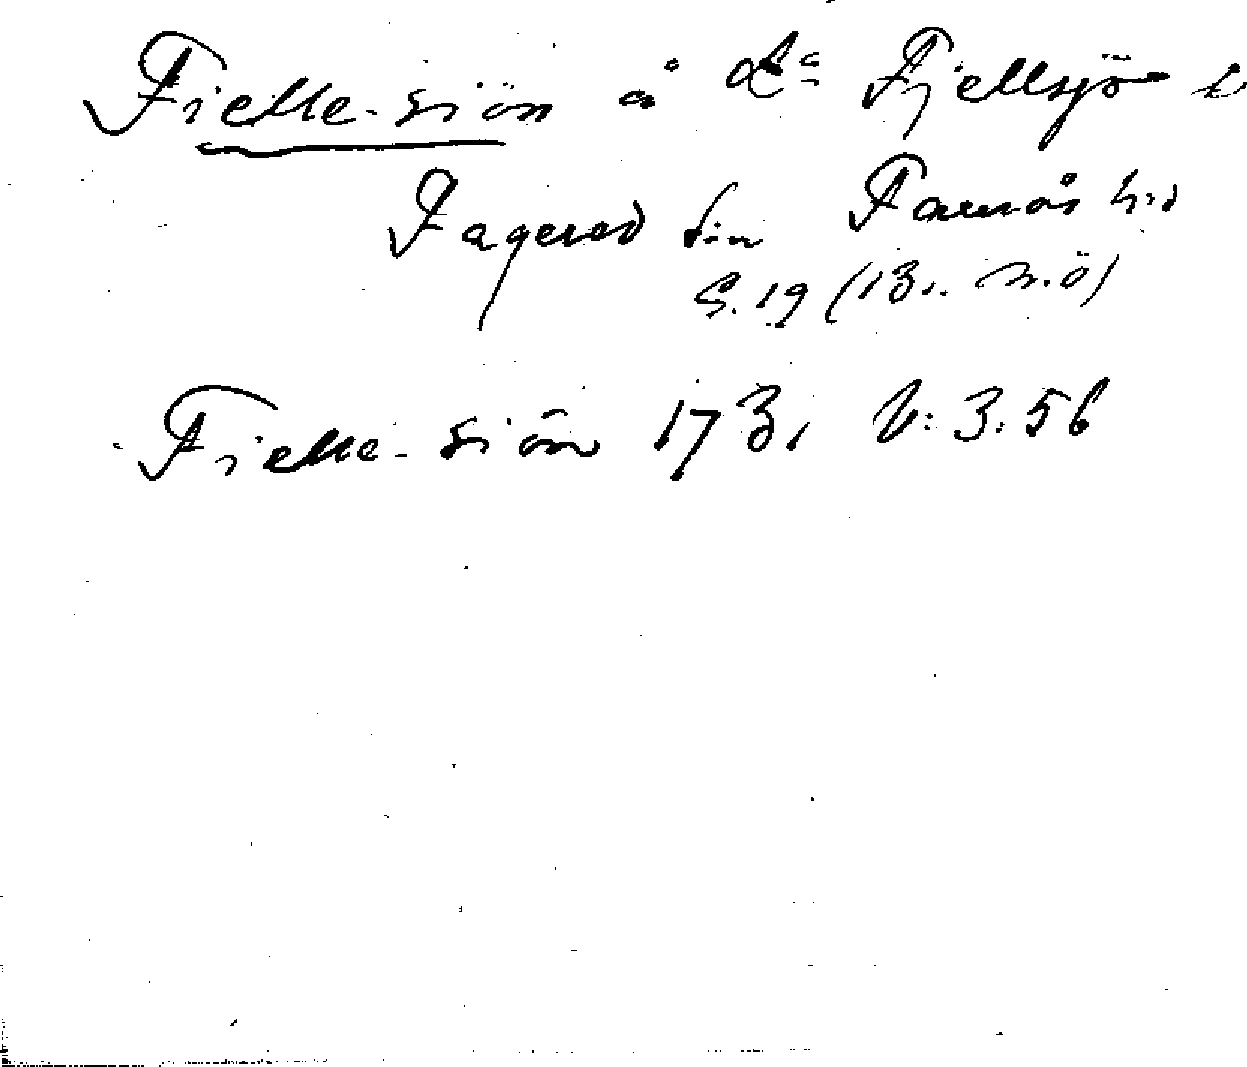 Fielle-siön å La Fjellsjö i
Fagered sn Faurås h:d
S. 19 (13. n.ö)
Fielle-siön 173, V: 3:56